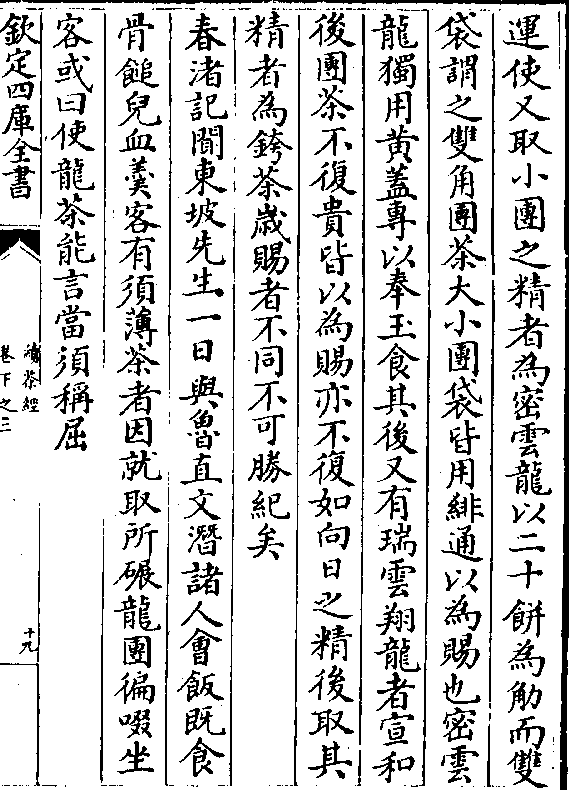 運使又取小團之精者為密雲龍以二十餅為觔而雙
袋謂之雙角團茶大小團袋皆用緋通以為賜也密雲
龍獨用黄蓋專以奉玉食其後又有瑞雲翔龍者宣和
後團茶不復貴皆以為賜亦不復如向日之精後取其
精者為銙茶歲賜者不同不可勝紀矣
春渚記聞東坡先生一日與魯直文潛諸人會飯既食
骨䭔兒血羹客有須薄茶者因就取所碾龍團徧啜坐
客或曰使龍茶能言當須稱屈
欽定四庫全書
續茶經
卷下之三
十九